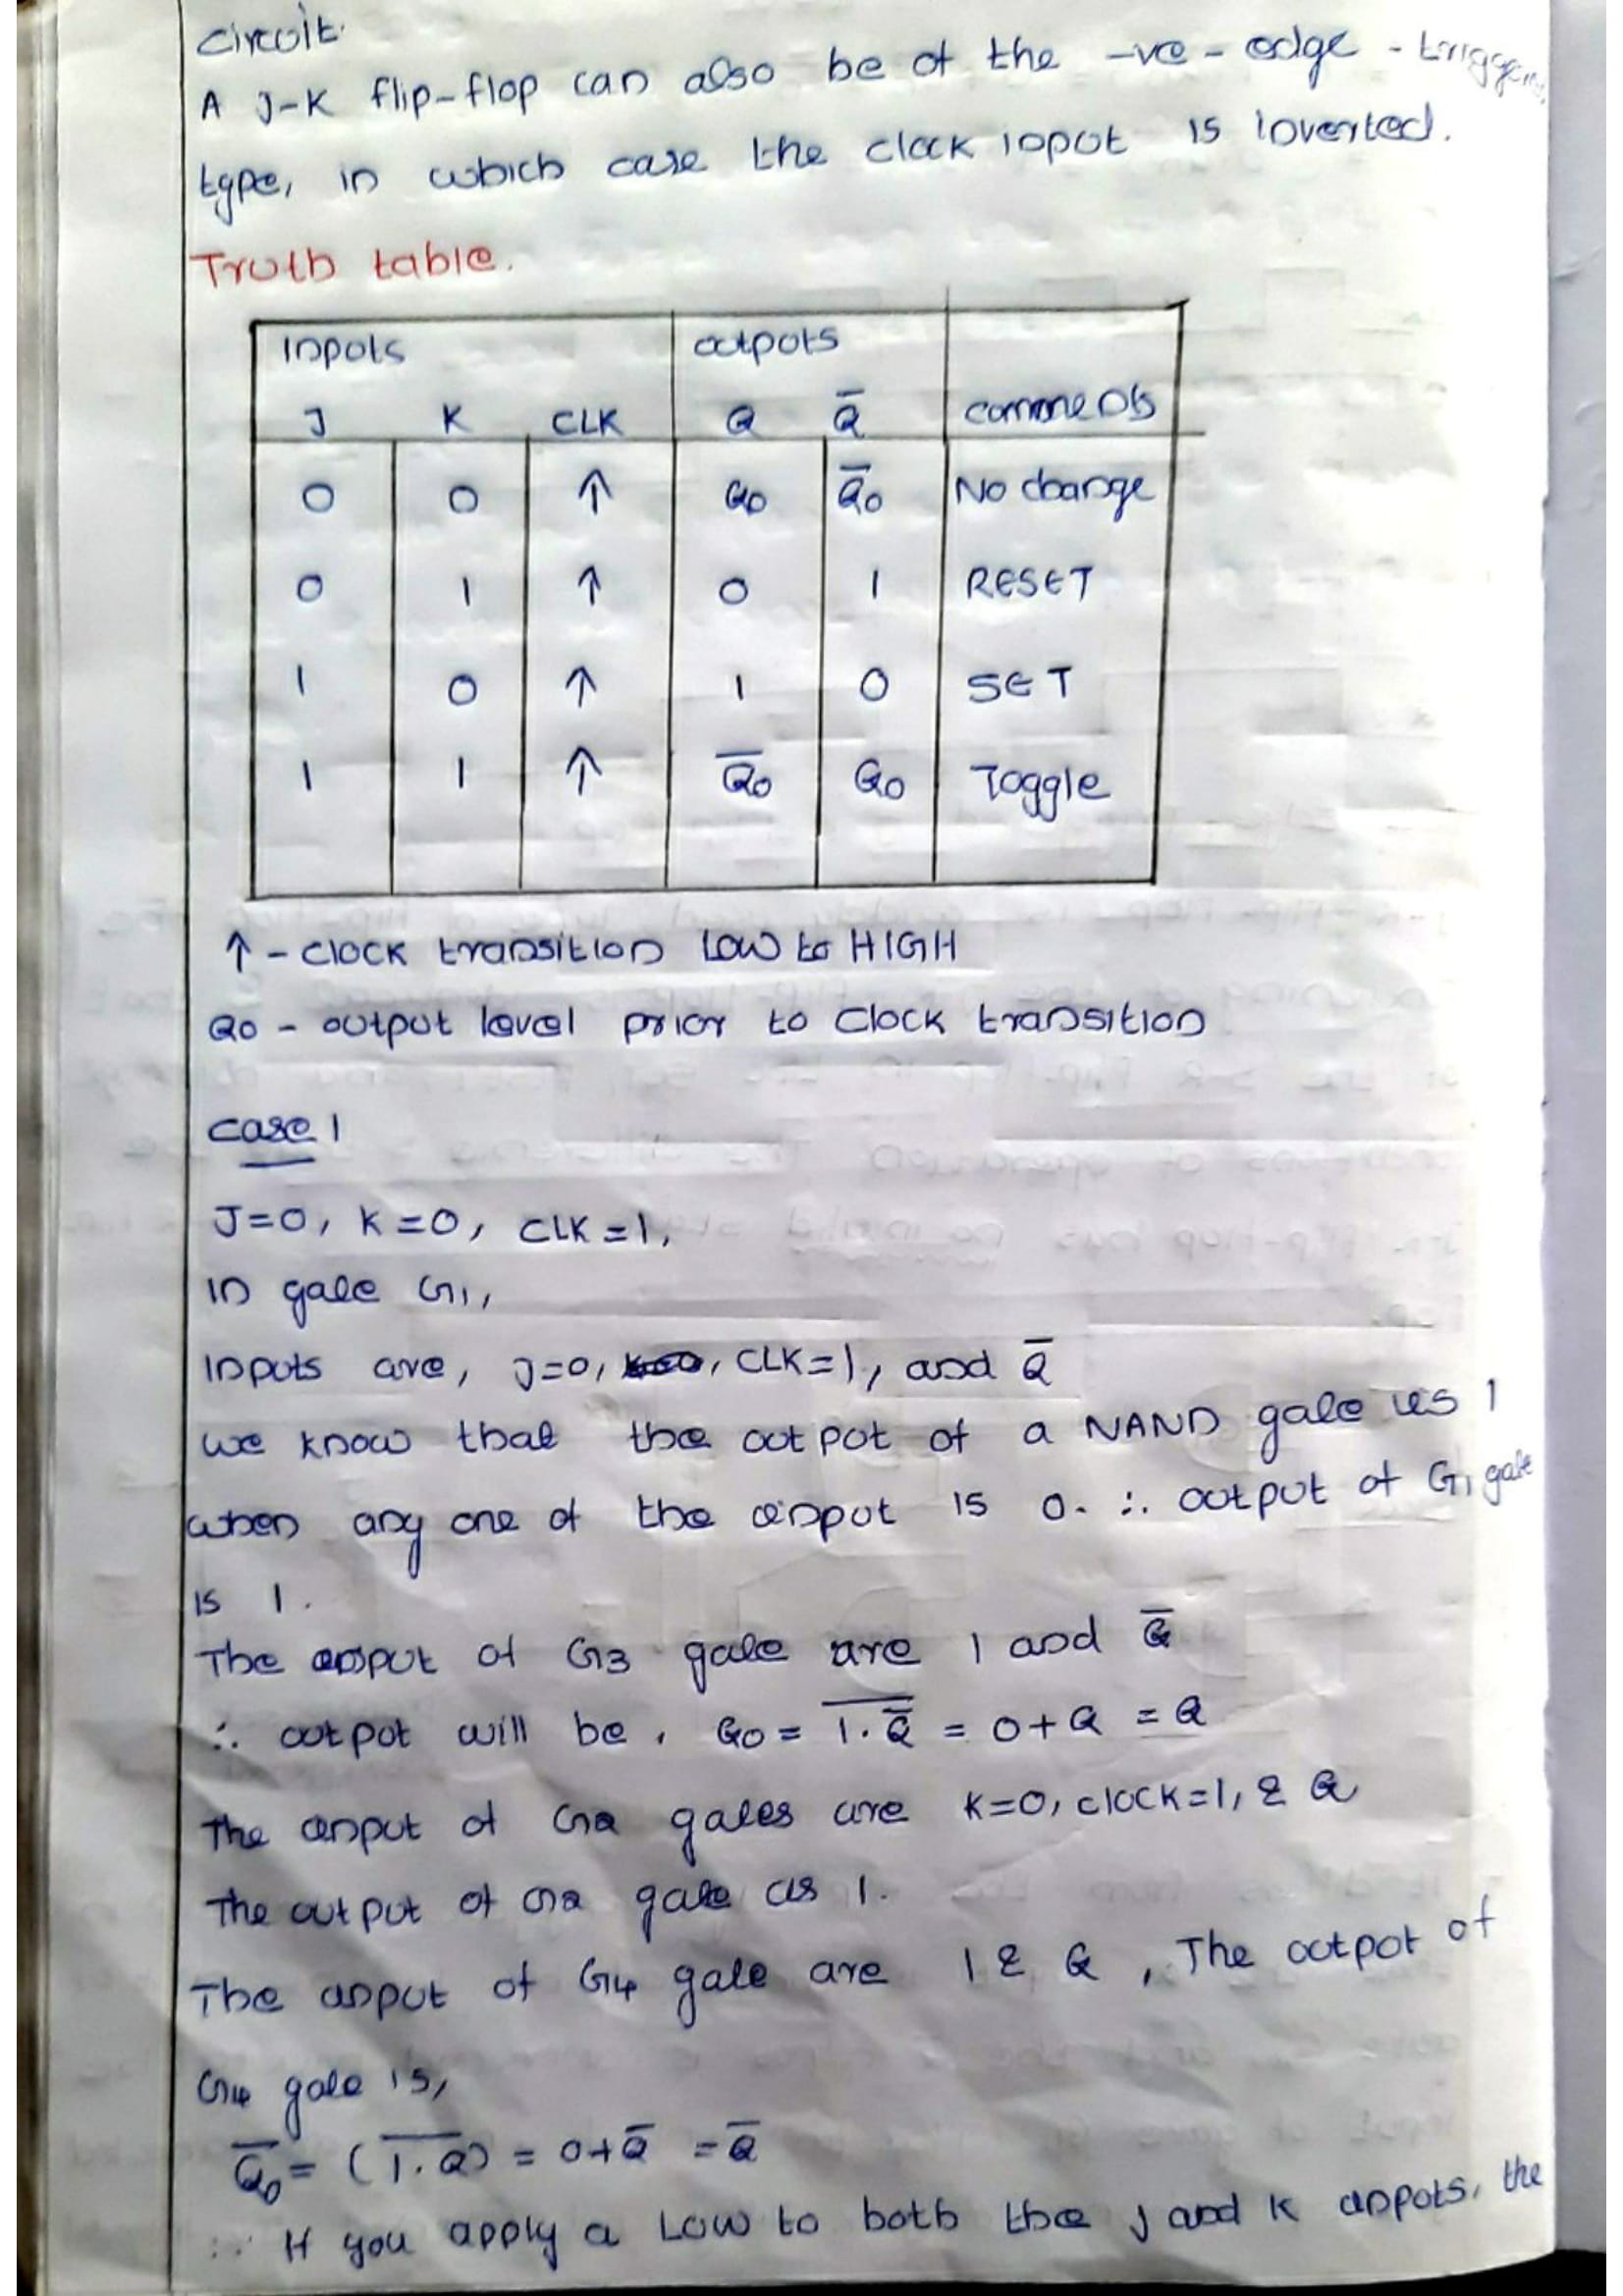 circuit.
A J-K flip-flop can also be of the -ve-edge-trigger
type, in which case the clock input is inverted.
Truth table.
Inputs outputs
J K CLK Q Q̅ comments
0 0 ↑ Q0 Q̅0 No change
0 1 ↑ 0 1 RESET
1 0 ↑ 1 0 SET
1 1 ↑ Q̅0 Q0 Toggle
↑ - clock transition LOW to HIGH
Q0 - output level prior to clock transition
case 1
J=0, K=0, CLK=1,
In gate G1,
Inputs are, J=0, CLK=1, and Q̅
we know that the output of a NAND gate is 1
when any one of the input is 0. ∴ output of G1 gate
is 1.
The input of G3 gate are 1 and Q̅
∴ output will be, Q0 = \overline{1.Q̅} = 0+Q = Q
The input of G2 gates are K=0, clock=1, & Q
The output of G2 gate is 1.
The input of G4 gate are 1 & Q, The output of
G4 gate is,
Q̅0 = (\overline{1.Q}) = 0+Q̅ = Q̅
∴ If you apply a LOW to both the J and K inputs, the